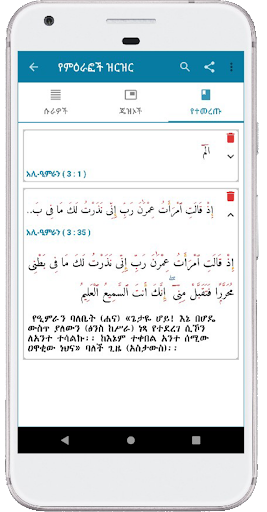 የምዕራፎች ዝርዝር
ሱራዎች
ጁዝኦች
የተመረጡ
الٓمٓ
አሊ-ዒምራን ( 3 : 1 )
إِذْ قَالَتِ ٱمْرَأَتُ عِمْرَٰنَ رَبِّ إِنِّى نَذَرْتُ لَكَ مَا فِى بَ...
አሊ-ዒምራን ( 3 : 35 )
إِذْ قَالَتِ ٱمْرَأَتُ عِمْرَٰنَ رَبِّ إِنِّى نَذَرْتُ لَكَ مَا فِى بَطْنِى
مُحَرَّرًا فَتَقَبَّلْ مِنِّىٓ ۖ إِنَّكَ أَنتَ ٱلسَّمِيعُ ٱلْعَلِيمُ
የዒምራን ባለቤት (ሐና) «ጌታዬ ሆይ! እኔ በሆዴ
ውስጥ ያለውን (ፅንስ ከሥራ) ነጻ የተደረገ ሲኾን
ለአንተ ተሳልኩ፡፡ ከእኔም ተቀበል አንተ ሰሚው
ዐዋቂው ነህና» ባለች ጊዜ (አስታውስ)፡፡